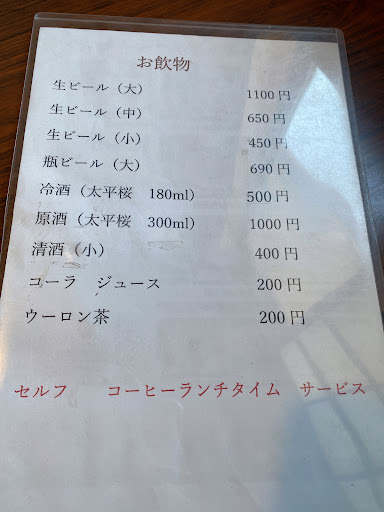 お飲物
生ビール（大） 1100 円
生ビール（中） 650 円
生ビール（小） 450 円
瓶ビール（大） 690 円
冷酒（太平桜 180ml） 500 円
原酒（太平桜 300ml） 1000 円
清酒（小） 400 円
コーラ ジュース 200 円
ウーロン茶 200 円
セルフ コーヒーランチタイム サービス